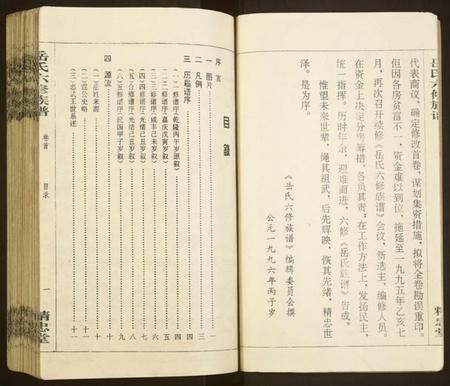 岳氏六修族谱
代表商议，确定修改首卷，谋划集资措施，拟将全卷勘误重印。
但因各房贫富不一，资金难以到位，拖延至一九九五年乙亥七
月，再次召开续修《岳氏六修族谱》会议，新选主、编修人员。
在资金上决定分夹筹措，各负其责，在工作方法上，发扬民主，
统一指挥。历时年余，迎难而进，六修《岳氏族谱》告成。
惟望未来世辈，绳其祖武，后先辉映，恢其先绪，精忠世
泽。是为序。
《岳氏六修族谱》编辑委员会撰
公元一九九六年丙子岁
精忠堂
目录
序言 一
一 图片
二 凡例 三
三 历届谱序 四
(一)一修谱序(乾隆丙午岁愿叙) 四
(二)二修谱序(嘉庆戊寅岁叙)
(三)三修谱序(咸丰己未岁叙)
(四)四修谱序(光绪己丑岁叙)
(五)合修谱序(光绪己丑岁叙) 八
(六)五修谱序(民国甲子岁叙) 九
四 源流 十
(一)岳氏来源 十
(二)
(三)忠武王世系述 十一
岳氏六修族谱
卷首
目录
一
精忠堂